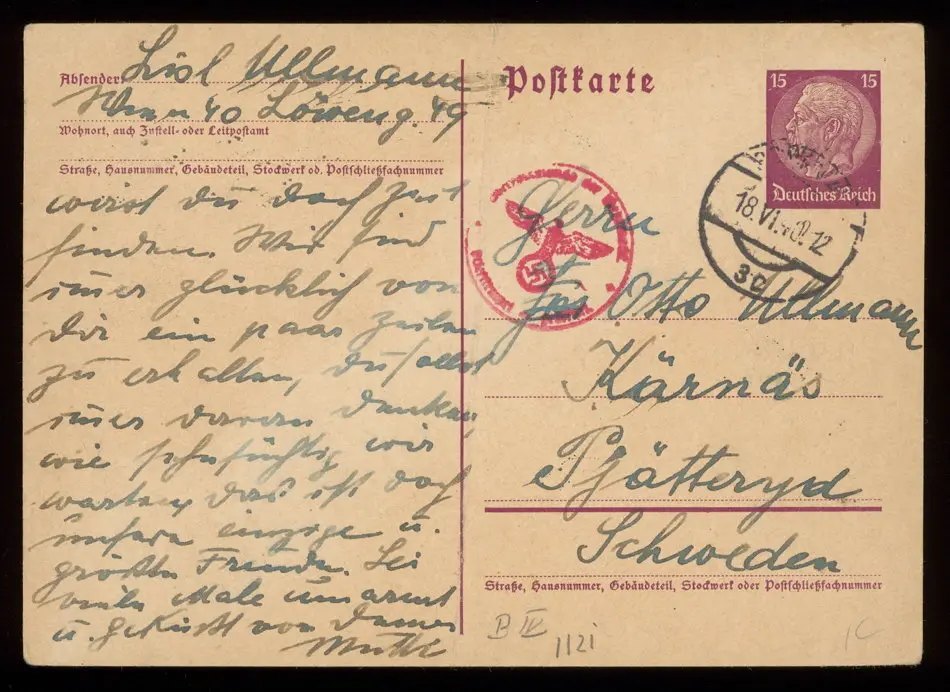 Absender:
Lisl Ullmann
Wien 40 Löweng. 49
Wohnort, auch Zustell- oder Leitpostamt
Straße, Hausnummer, Gebäudeteil, Stockwerk od. Postschließfachnummer
wirst du doch Zeit
finden. Wir sind
immer glücklich von
dir ein paar Zeilen
zu erhalten, du sollst
immer daran denken,
wie sehnsüchtig wir
warten, das ist doch
unsere einzige u.
größte Freude. Sei
viele Male umarmt
u. geküsst von Deiner
Mutti
Postkarte
15 15
Deutsches Reich
18.VI.40.12
3c
Herrn
Otto Ullmann
Kärnäs
Pjätteryd
Schweden
Straße, Hausnummer, Gebäudeteil, Stockwerk oder Postschließfachnummer
B IV
1121